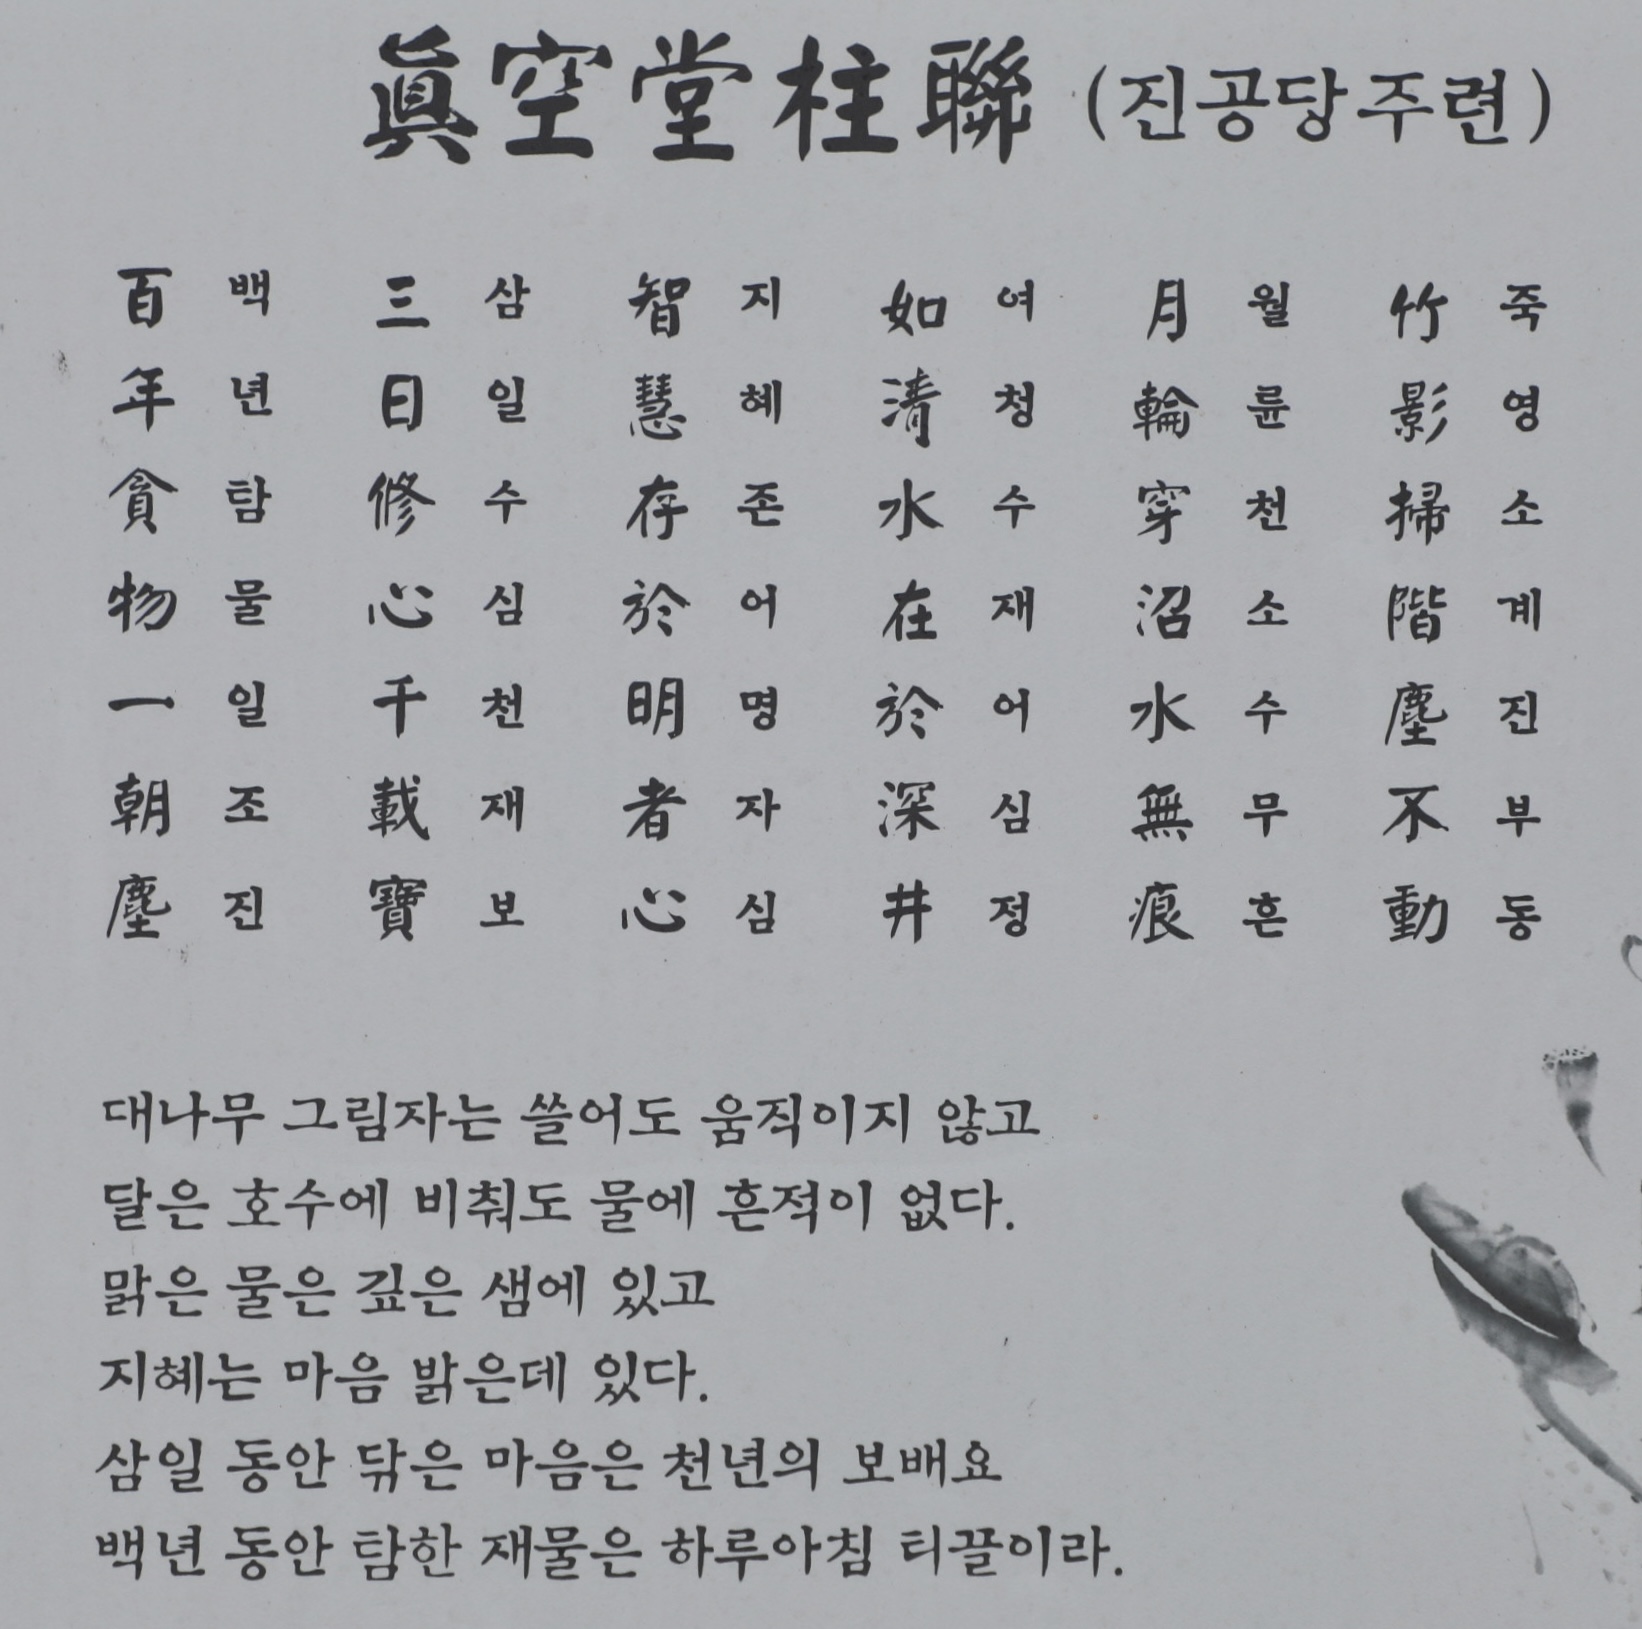 眞空堂柱聯 (진공당주련)
竹影掃階塵不動
죽영소계진부동
月輪穿沼水無痕
월륜천소수무흔
如清水在於深井
여청수재어심정
智慧存於明者心
지혜존어명자심
三日修心千載寶
삼일수심천재보
百年貪物一朝塵
백년탐물일조진
대나무 그림자는 쓸어도 움직이지 않고
달은 호수에 비춰도 물에 흔적이 없다.
맑은 물은 깊은 샘에 있고
지혜는 마음 밝은데 있다.
삼일 동안 닦은 마음은 천년의 보배요
백년 동안 탐한 재물은 하루아침 티끌이라.